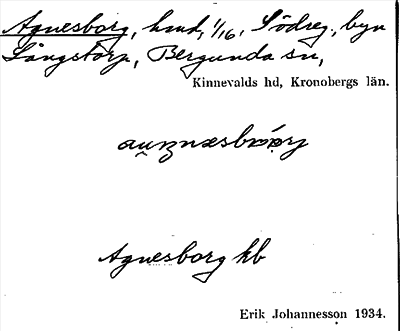 Agnesborg, hmd, 1/16, Södreg., byn
Långstorp, Bergunda sn,
Kinnevalds hd, Kronobergs län.
Agnesborg kb
Erik Johannesson 1934.